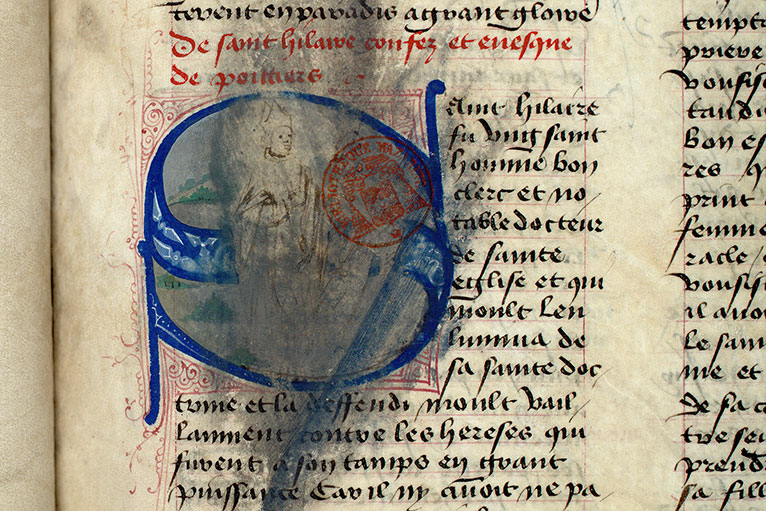 tevent en paradis a grant gloire
De saint hilaire confez et evesque
de poitiers
Saint hilaire
fu ung saint
homme bon
clerc et no
table docteur
de sainte
eglise et qui
moult len
lumina de
sa sainte doc
trine et la deffendi moult vail
lanment contre les hereses qui
furent a son tamps en grant
puissance Car il ny avoit ne pa
prieve
vousis
tandis
bon es
res
print
femme
racle
vousis
il avoi
le sain
me et
de sa c
tre seu
prend
sa fill